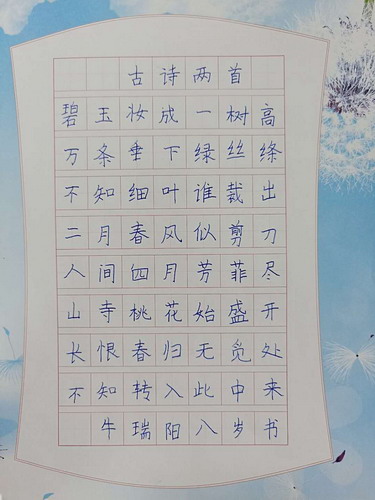 古诗两首
碧玉妆成一树高
万条垂下绿丝绦
不知细叶谁裁出
二月春风似剪刀
人间四月芳菲尽
山寺桃花始盛开
长恨春归无觅处
不知转入此中来
牛瑞阳八岁书